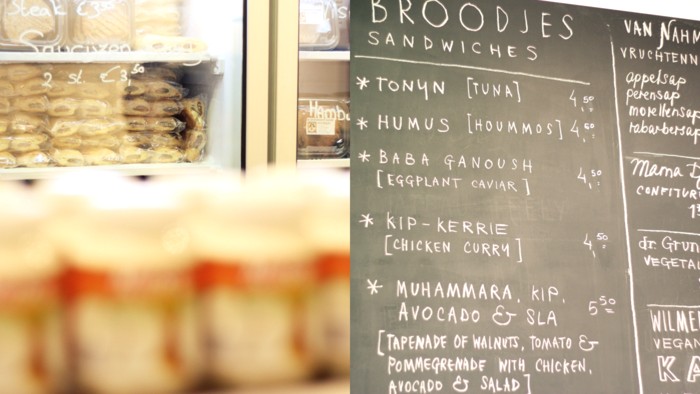 Steak
Saucijzen
2 st. €3,50
Hambu
BROODJES
SANDWICHES
* TONYN [TUNA] 4,50
* HUMUS [HOUMMOS] 4,50
* BABA GANOUSH
[EGGPLANT CAVIAR] 4,50
* KIP-KERRIE
[CHICKEN CURRY] 4,50
* MUHAMMARA, KIP,
AVOCADO & SLA 5,50
[TAPENADE OF WALNUTS, TOMATO &
POMMEGRENADE WITH CHICKEN,
AVOCADO & SALAD]
VAN NAHM
VRUCHTENN
appelsap
perensap
morellensap
rabarbersap
Mama
CONFITUR
dr. Grun
VEGETAI
WILME
VEGAN
KA